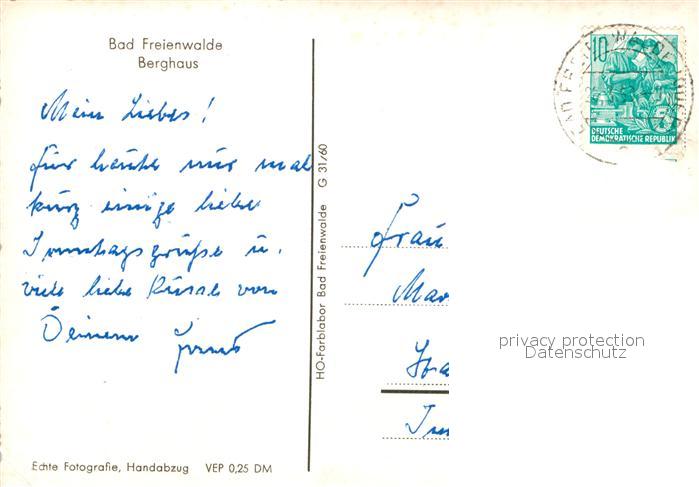 Bad Freienwalde
Berghaus
Mein Liebes!
Für heute nur mal
kurz einige liebe
Sonntagsgrüße u.
viele liebe Küsse von
Deinem
HO-Farblabor Bad Freienwalde G 31/60
Echte Fotografie, Handabzug VEP 0,25 DM
10
DEUTSCHE
DEMOKRATISCHE REPUBLIK
5
Frau
privacy protection
Datenschutz